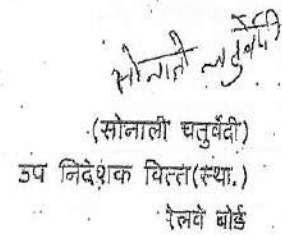 सोनाली चतुर्वेदी
(सोनाली चतुर्वेदी)
उप निदेशक वित्त(स्था.)
रेलवे बोर्ड